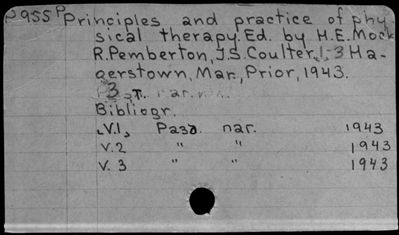 P955P Principles and practice of phy
sical therapy. Ed. by H.E. Mock
R. Pemberton, J.S. Coulter. 1-3 Ha-
gerstown, Mar., Prior, 1943.
3 т.
Bibliogr.
V.1, Разд. паг. 1943
V.2 " " 1943
V.3 " " 1943